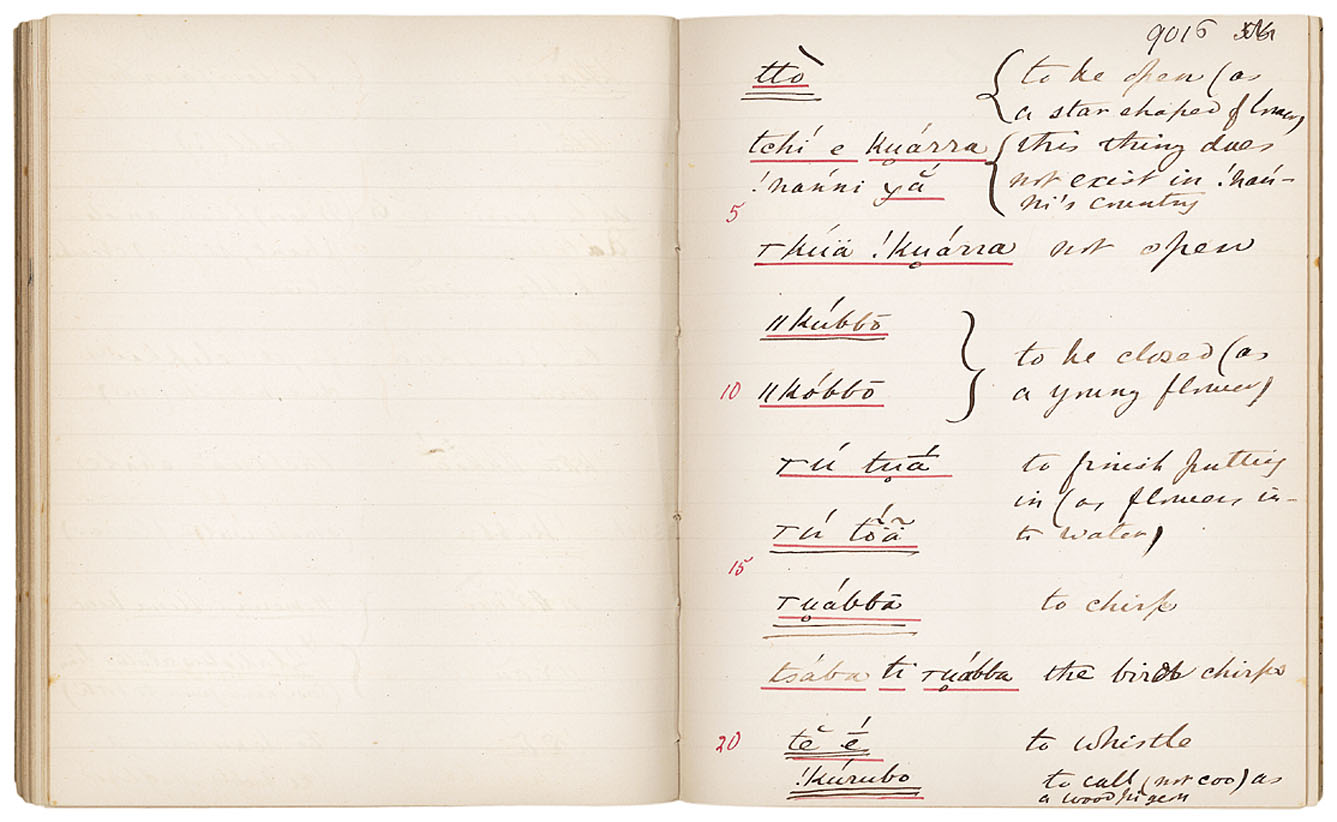 9016
ttò { to be open (as
a star shaped flower)
tchí e ku̥árra { this thing does
!naṅni yắ not exist in !naṅ-
5 ni's country
⊤kúä !ku̥árra not open
ǁkúbbō } to be closed (as
10 ǁkóbbō a young flower)
⊤ú tu̥ā́ to finish putting
in (as flowers in-
⊤ú tṍã to water)
15
⊤u̥ábbā to chirp
tsába ti ⊤u̥ábba the bird chirps
20 tĕ é̄ to whistle
!kúrubo to call (not coo) as
a wood pigeon